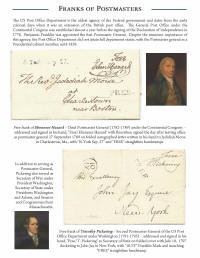 FRANKS OF POSTMASTERS
The US Post Office Department is the oldest agency of the Federal government and dates from the early
colonial days when it was an extension of the British post office. The General Post Office under the
Continental Congress was established almost a year before the signing of the Declaration of Independence in
1776. Benjamin Franklin was appointed the first Postmaster General. Despite the immense importance of
this agency, the Post Office Department did not attain full department status, with the Postmaster general as a
Presidential cabinet member, until 1829.
Free
The Revd Jedediah Morse
Charlestown
near Boston
Free frank of Ebenezer Hazard - Third Postmaster General (1782-1789) under the Continental Congress -
addressed and signed in his hand, "Free / Ebenezer Hazard" with flourishes, signed the day after leaving office
as postmaster general 27 September 1789 on folded autographed letter written in his hand to Jedidiah Morse
in Charlestown, Ma., with "N.York Sep. 27" and "FREE" straightline handstamps.
In addition to serving as
Postmaster General,
Pickering also served as
Secretary of War under
President Washington,
Secretary of State under
Presidents Washington
and Adams, and Senator
and Congressman from
Massachusetts.
Free
T. Pickering
His Excellency
John Jay Esquire
New York
Free frank of Timothy Pickering - Second Postmaster General of the US Post
Office Department under Washington (1791-1795) - addressed and signed in his
hand, "Free / T. Pickering" as Secretary of State on folded cover with July 10, 1797
docketing to John Jay in New York, with "10 IY" Franklin Mark and matching
"FREE" straightline handstamp.